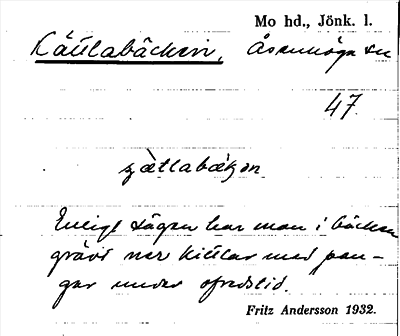 Mo hd., Jönk. l.
Kättlabäcken, Åsenhöga sn
47.
Enligt sägen har man i bäcken
grävt ner kittlar med pen-
gar under ofredstid.
Fritz Andersson 1932.